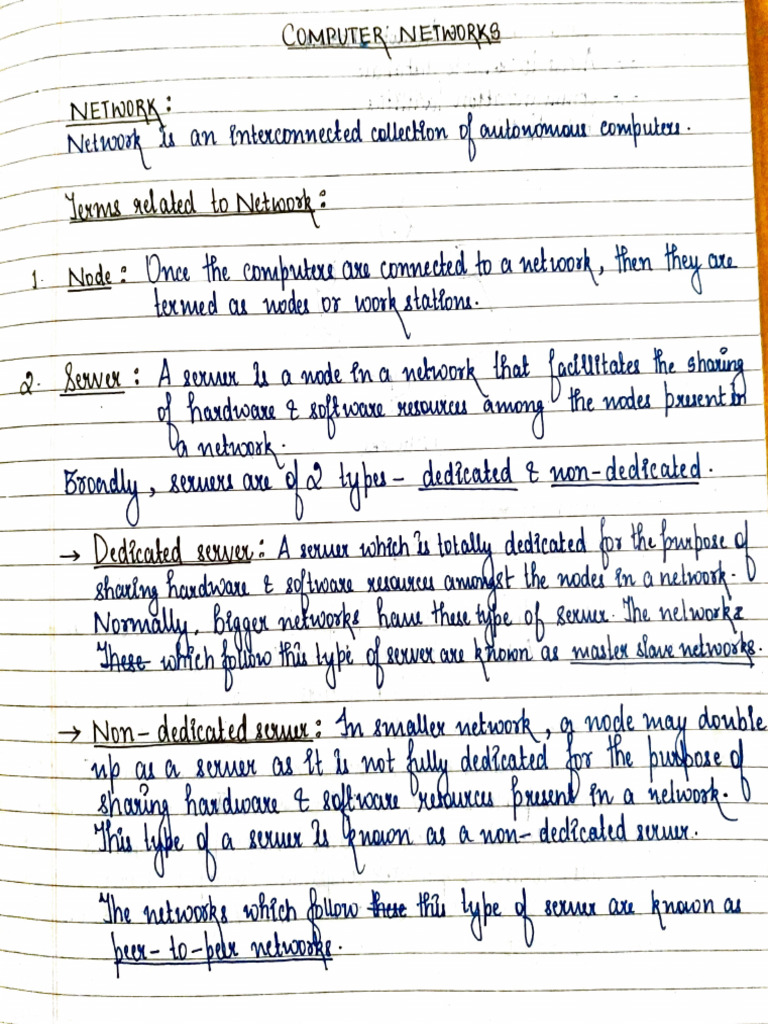 COMPUTER NETWORKS
NETWORK:
Network is an interconnected collection of autonomous computers.
Terms related to Network:
1. Node: Once the computers are connected to a network, then they are
termed as nodes or work stations.
2. Server: A server is a node in a network that facilitates the sharing
of hardware & software resources among the nodes present in
a network.
Broadly, servers are of 2 types - dedicated & non-dedicated.
→ Dedicated server: A server which is totally dedicated for the purpose of
sharing hardware & software resources amongst the nodes in a network.
Normally, bigger networks have these type of server. The networks
These which follow this type of server are known as master slave networks.
→ Non-dedicated server: In smaller network, a node may double
up as a server as it is not fully dedicated for the purpose of
sharing hardware & software resources present in a network.
This type of a server is known as a non-dedicated server.
The networks which follow these this type of server are known as
peer-to-peer networks.